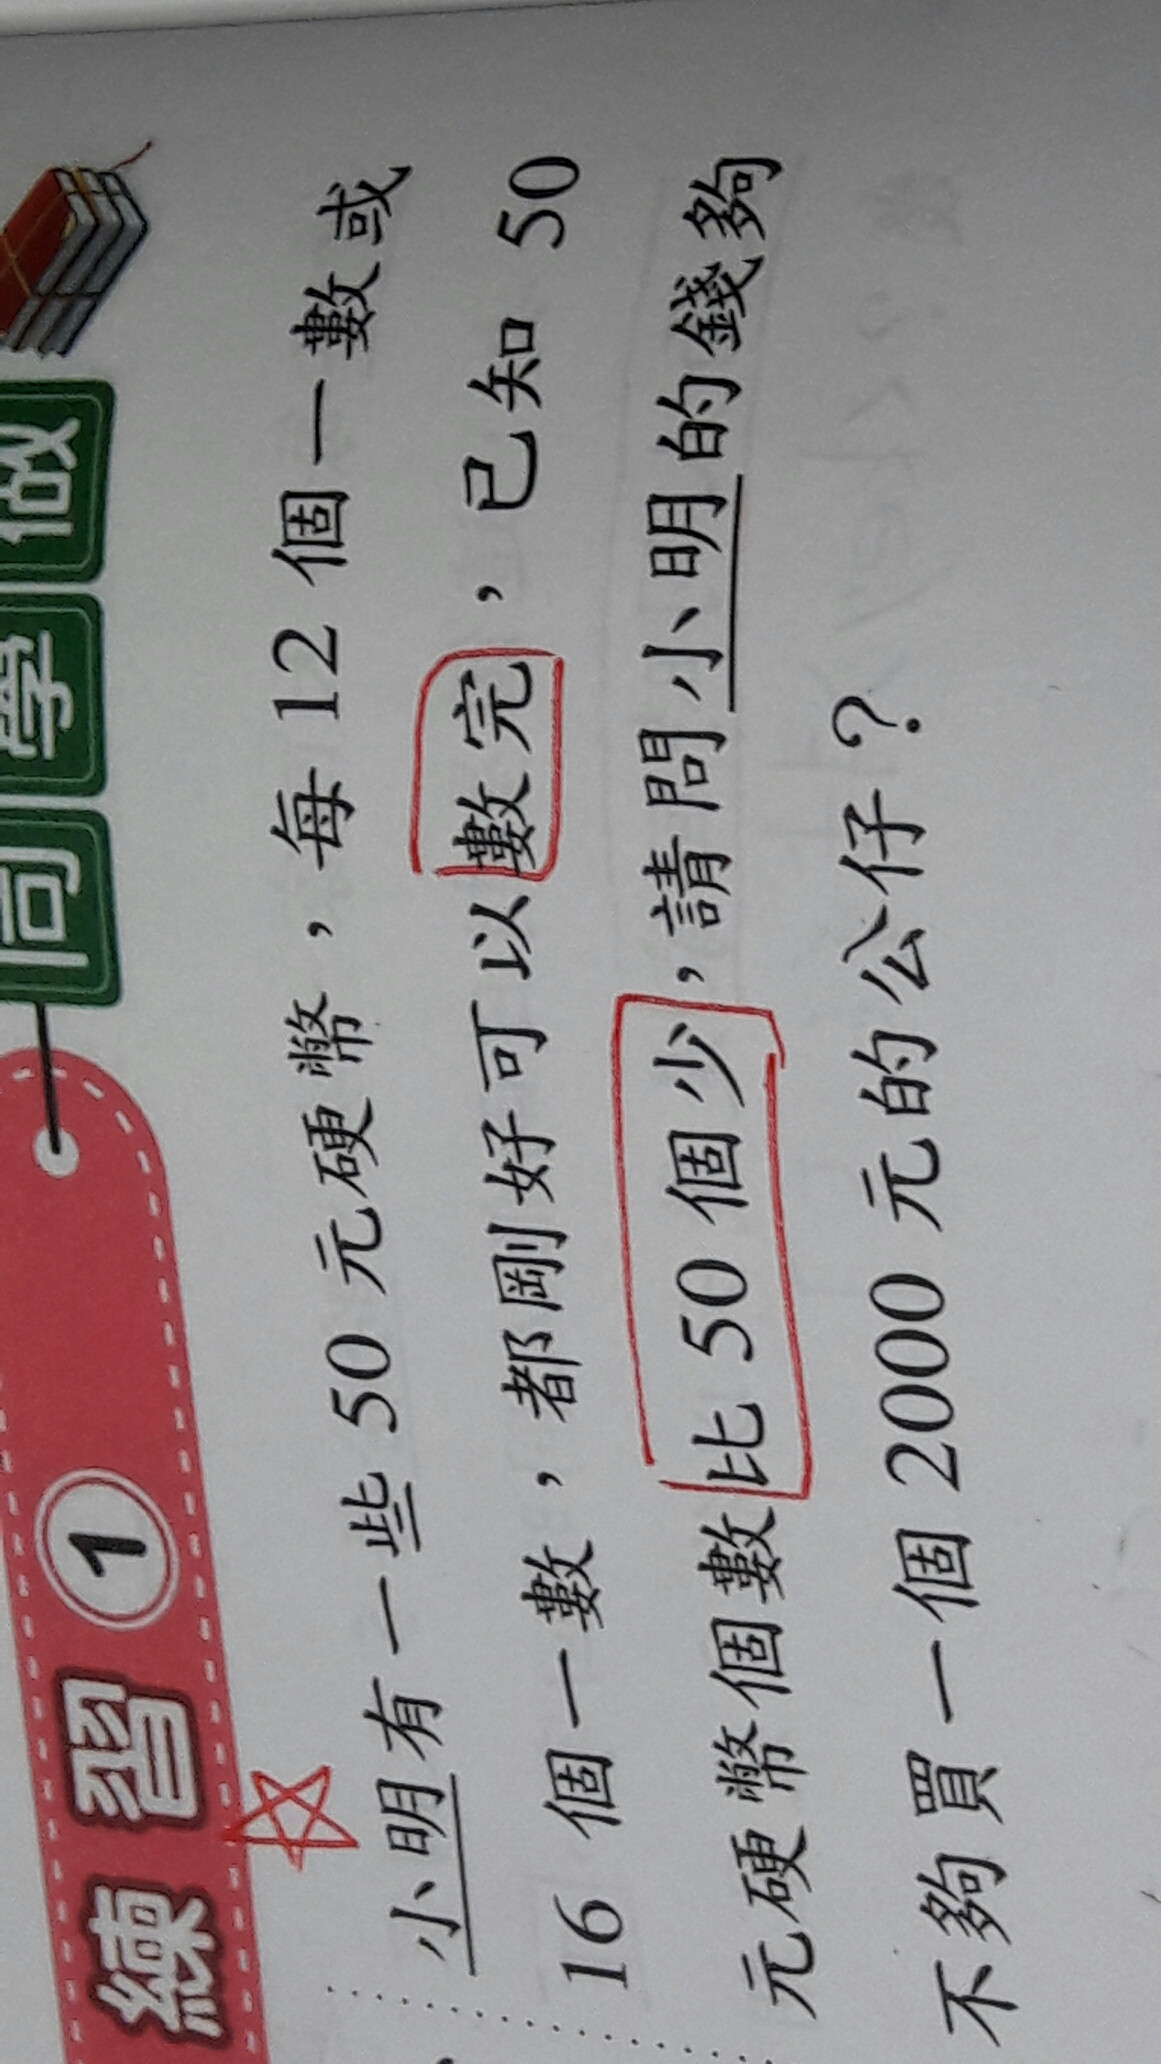 練習 1 同學做
小明有一些 50 元硬幣，每 12 個一數或
16 個一數，都剛好可以數完，已知 50
元硬幣個數比 50 個少，請問小明的錢夠
不夠買一個 2000 元的公仔？